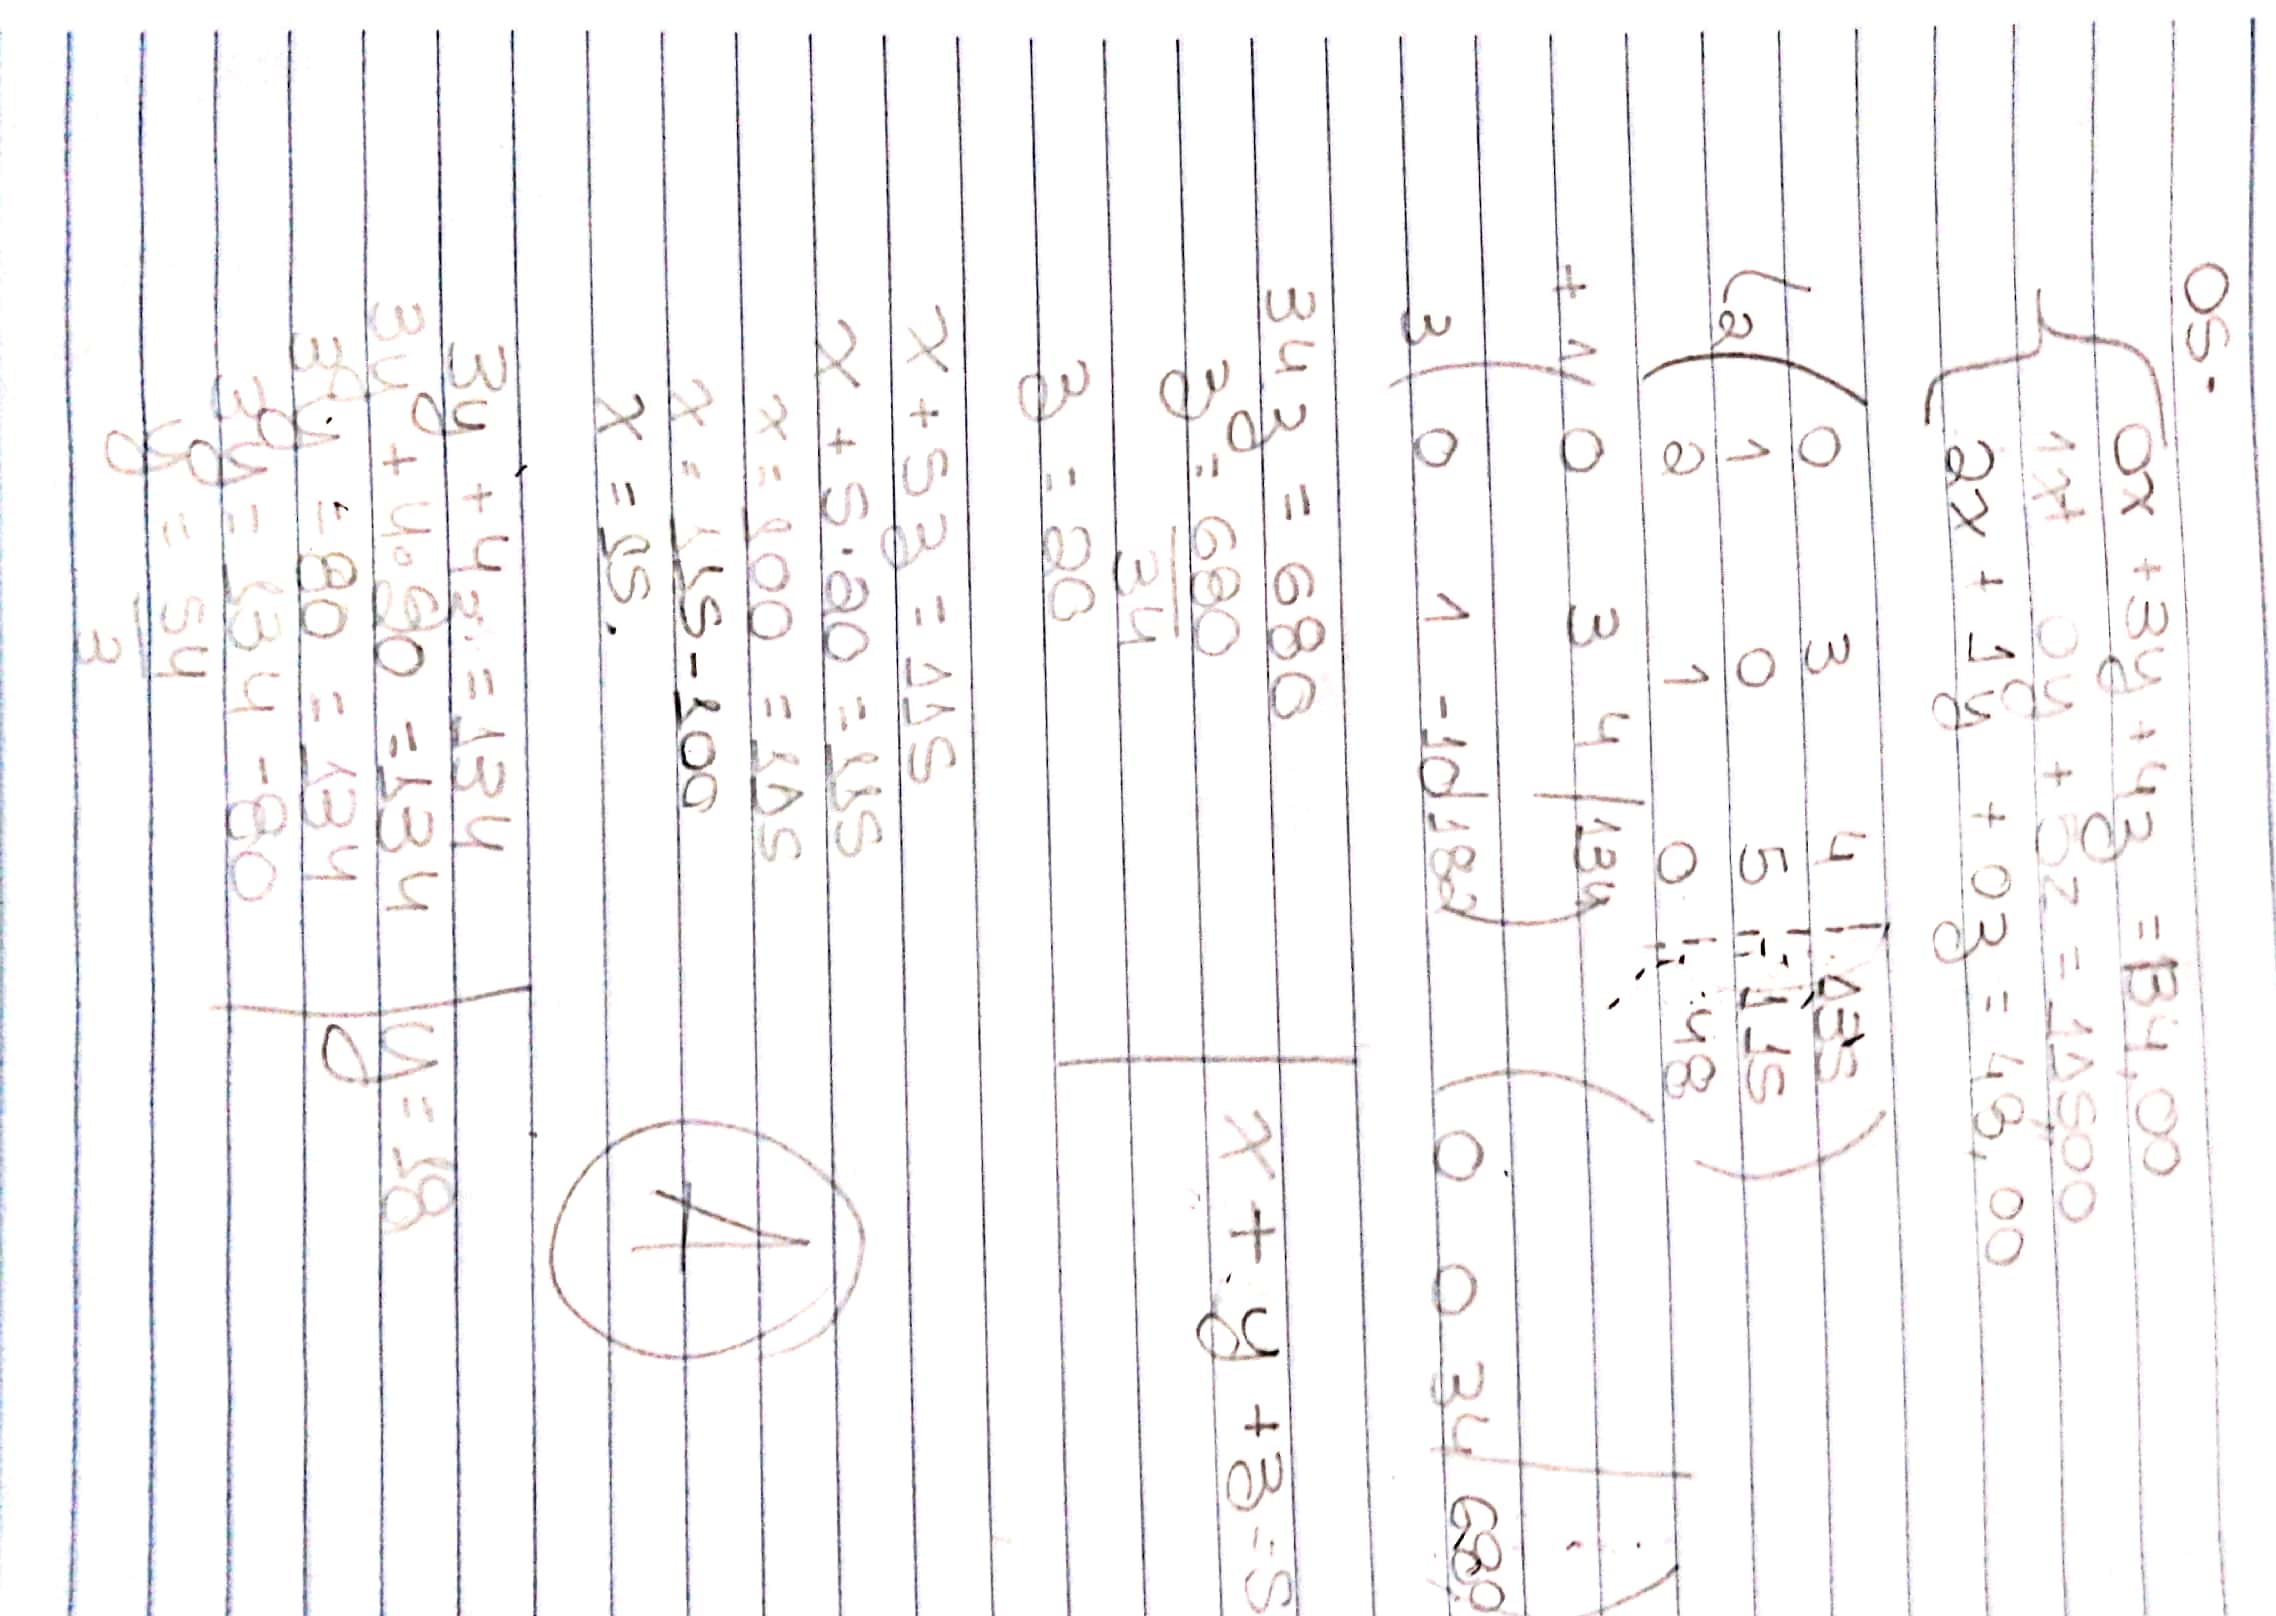 05.
0x + 3y + 4z = 134,00
1x + 0y + 5z = 11500
2x + 1y + 03 = 48,00
0 3 4 | 135
L2 1 0 5 | 115
2 1 0 | 48
+1 0 3 4 | 134
3 0 1 -10 | 182 0 0 34 | 680
34z = 680
z = 680
34
z = 20
x + y + z = S
x + 5z = 115
x + 5.20 = 115
x = 100 = 115
x = 115 - 100
x = 15.
A
3y + 4z = 134
3y + 4.20 = 134
3y = 80 = 134
3y = 134 - 80
y = 54
3
y = 18